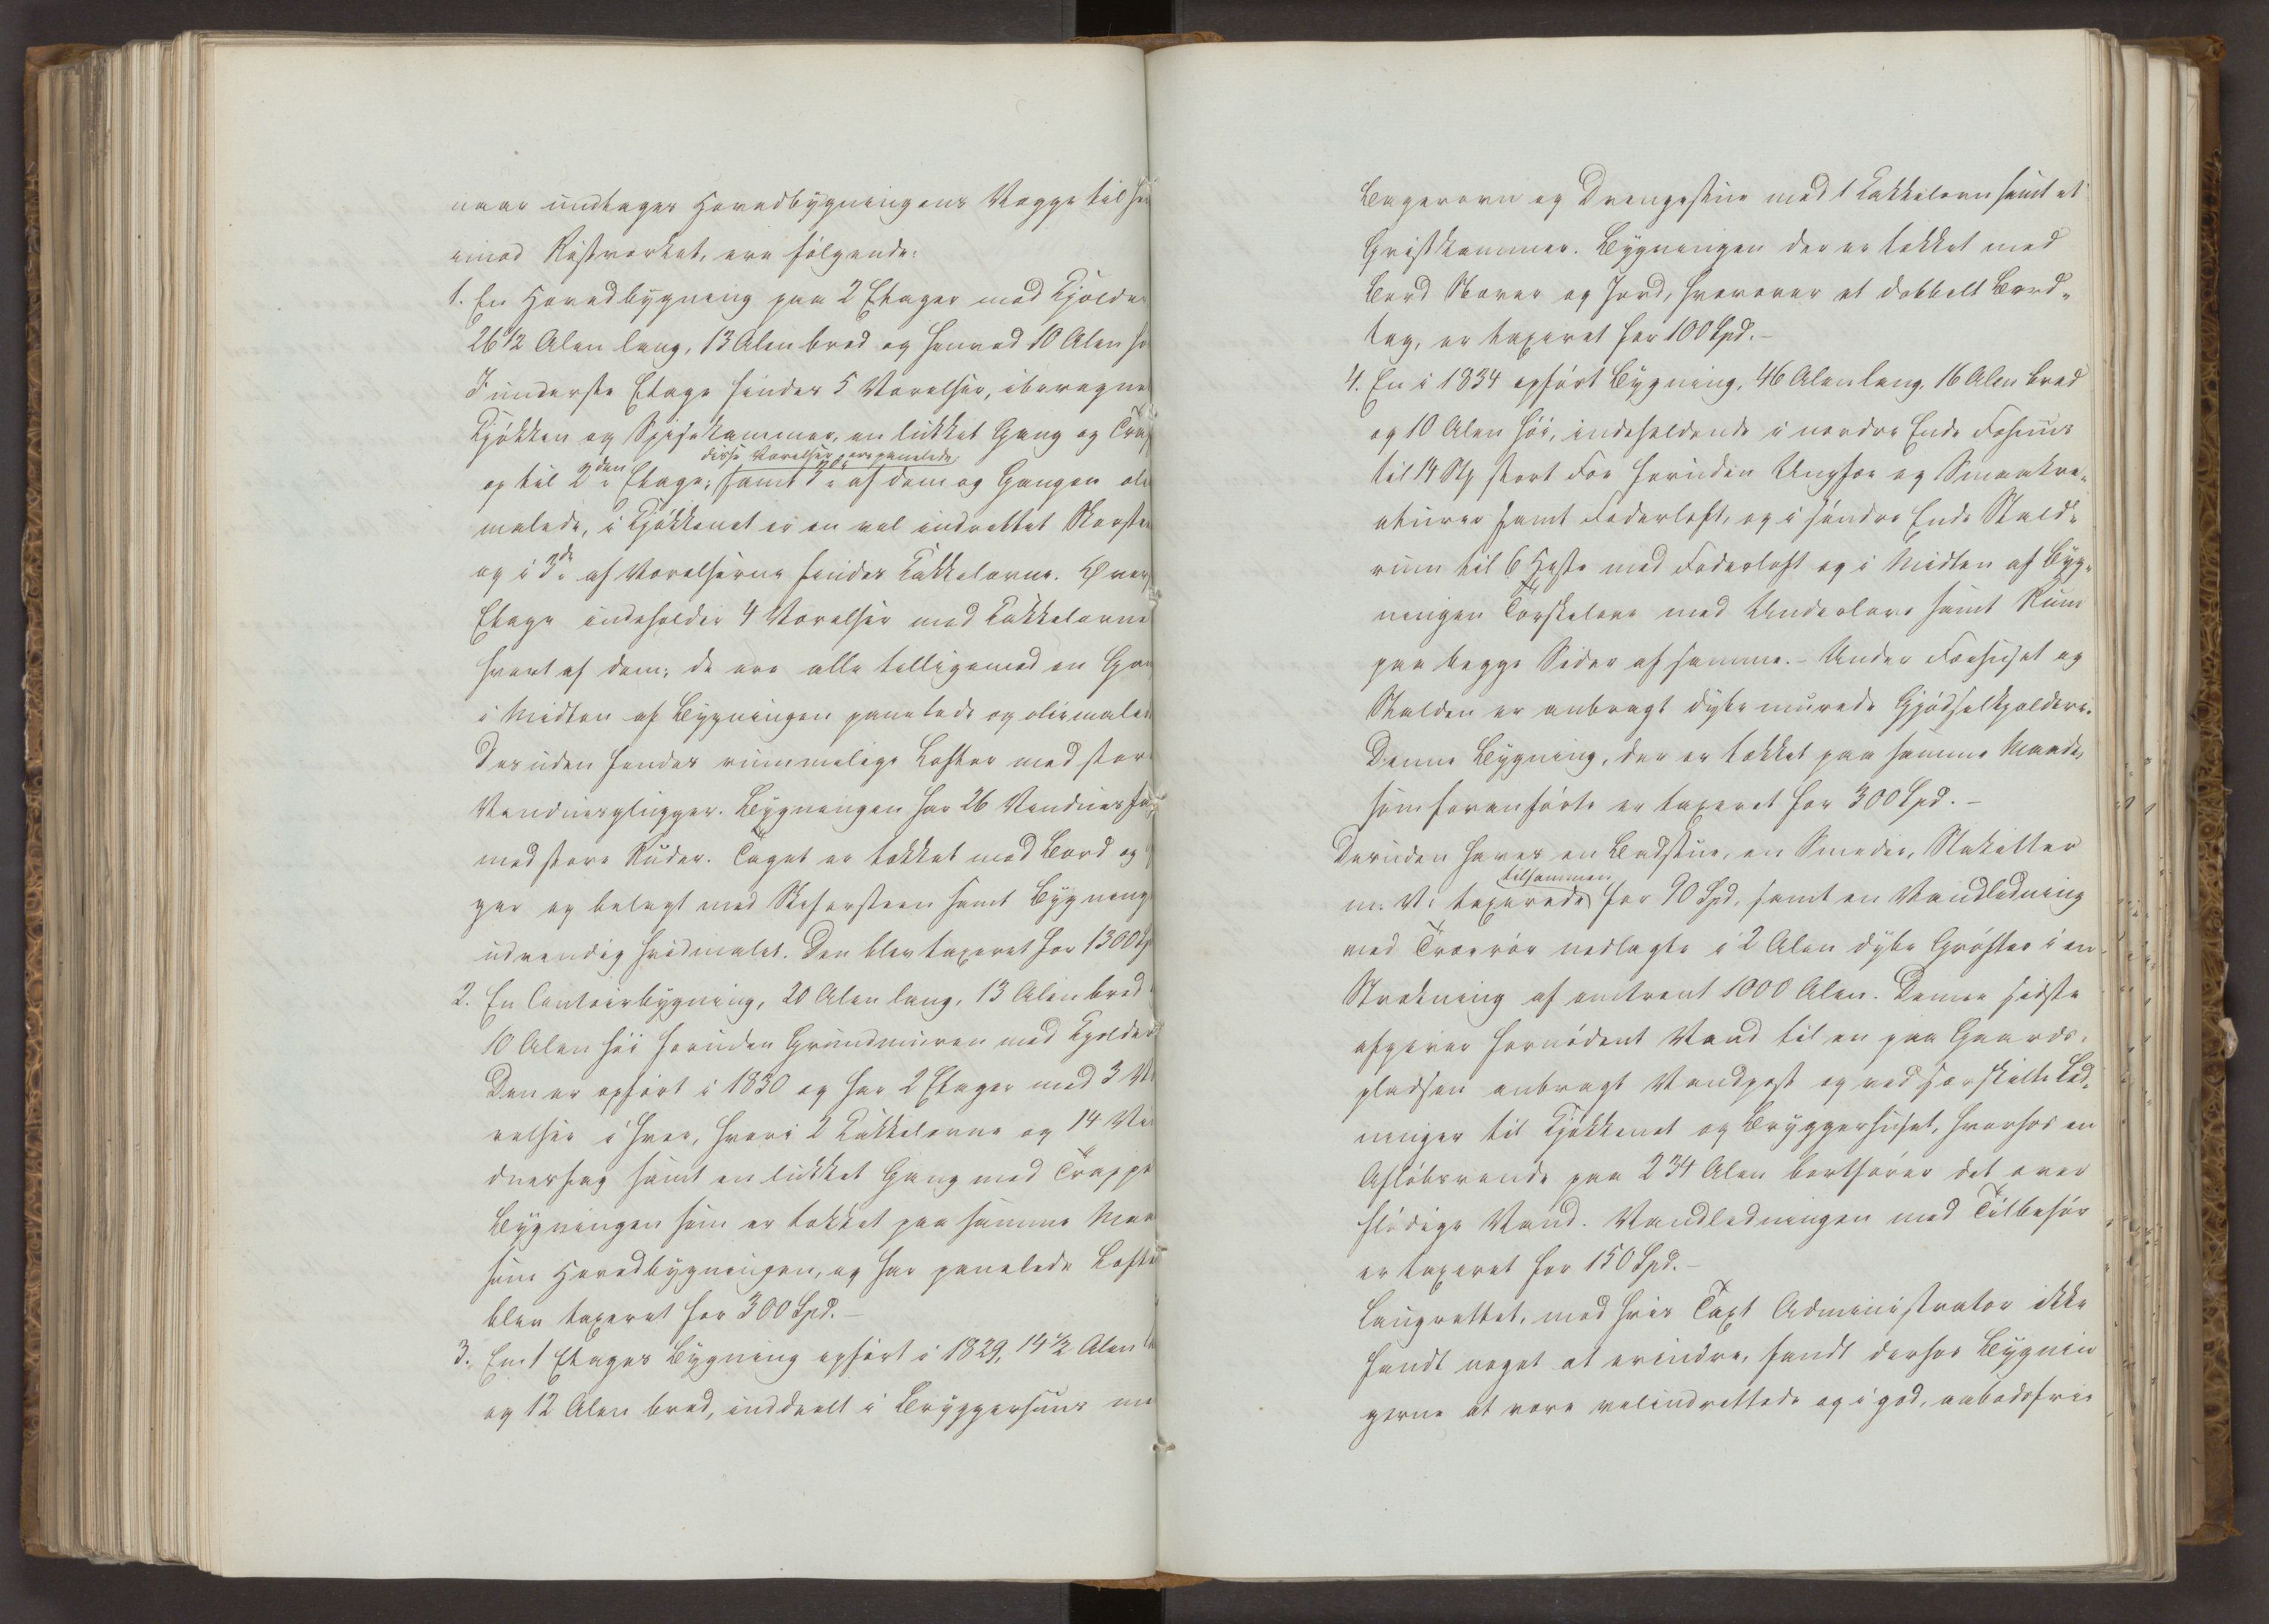 naar undtages Hovedbygningens Vægge til
imod Røstværket, ere følgende:
1. En Hovedbygning paa 2 Etager med Kjælder
26 1/2 Alen lang, 13 Alen bred og henved 10 Alen
I underste Etage findes 5 Værelser, iberegnet
Kjøkken og Spisekammer, en lukket Gang og
disse Værelser ere panelede
op til 2den Etage; samt af dem og Gangen
malede, i Kjøkkenet er en vel indrettet
og i 3de af Værelserne findes Kakkelovne.
Etage indeholder 4 Værelser med Kakkelovne
hvert af dem; de ere alle tilligemed en
i Midten af Bygningen panelede og
Desuden findes rummelige Lofter med
Vinduesglugger. Bygningen har 26
med store Ruder. Taget er tækket med Bord og
og belagt med Skifersteen samt
udvendig hvidmalet. Den blev taxeret for 1300
2. En Contoirbygning, 20 Alen lang, 13 Alen bred
10 Alen høi foruden Grundmuren med Kjælder
Den er opført i 1830 og har 2 Etager med 3 Væ
relser i hver, hvori 2 Kakkelovne og 14 Vin
duesfag samt en lukket Gang med Trappe
Bygningen som er tækket paa samme Maa
som Hovedbygningen, og har panelede
blev taxeret for 300 Spd. -
3. En 1 Etages Bygning opført i 1829, 14 1/2 Alen
og 12 Alen bred, inddeelt i Bryggerhuus
Bagerovn og Drengestue med 1 Kakkelovn samt et
Gristkammer. Bygningen der er tækket med
Bord Næver og Jord, hvorover et dobbelt Bord-
tag, er taxeret for 100 Spd. -
4. En i 1834 opført Bygning, 46 Alen lang, 16 Alen bred
og 10 Alen høi, indeholdende i nordre Ende Fæhuus
til 14 Stkr stort Fæ foruden Ungfæ og Smaakre-
aturer samt Foderloft, og i søndre Ende Stald-
rum til 6 Heste med Foderloft og i Midten af Byg-
ningen Tærskelove med Underlove samt Rum
paa begge Sider af samme. - Under Fæehuset og
Stalden er anbragt dybe murede Gjødselkjældere.
Denne Bygning, der er tækket paa samme Maade,
som foranførte er taxeret for 300 Spd. -
Desuden haves en Badstue, en Smedie, Stakitter
tilsammen
m. v. taxerede for 90 Spd, samt en Vandledning
med Trærør nedlagte i 2 Alen dybe Grøfter i en
Strækning af omtrent 1000 Alen. Denne sidste
afgiver fornødent Vand til en paa Gaards-
pladsen anbragt Vandpost og ved særskilte Led-
ninger til Kjøkkenet og Bryggerhuset, hvorhos en
Afløbsrende paa 234 Alen bortfører det over
flødige Vand. Vandledningen med Tilbehør
er taxeret for 150 Spd. -
Laugrettet, mod hvis Taxt Administrator ikke
fandt noget at erindre, fandt derhos Bygnin
gerne at være velindrettede og i god, aabodsfrie